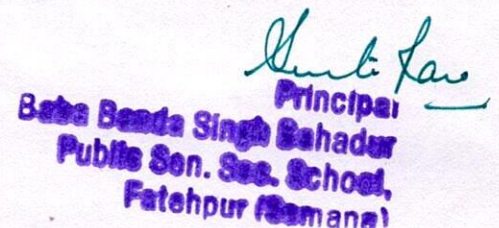 Principal
Baba Banda Singh Bahadur
Public Sen. Sec. School,
Fatehpur (Samana)